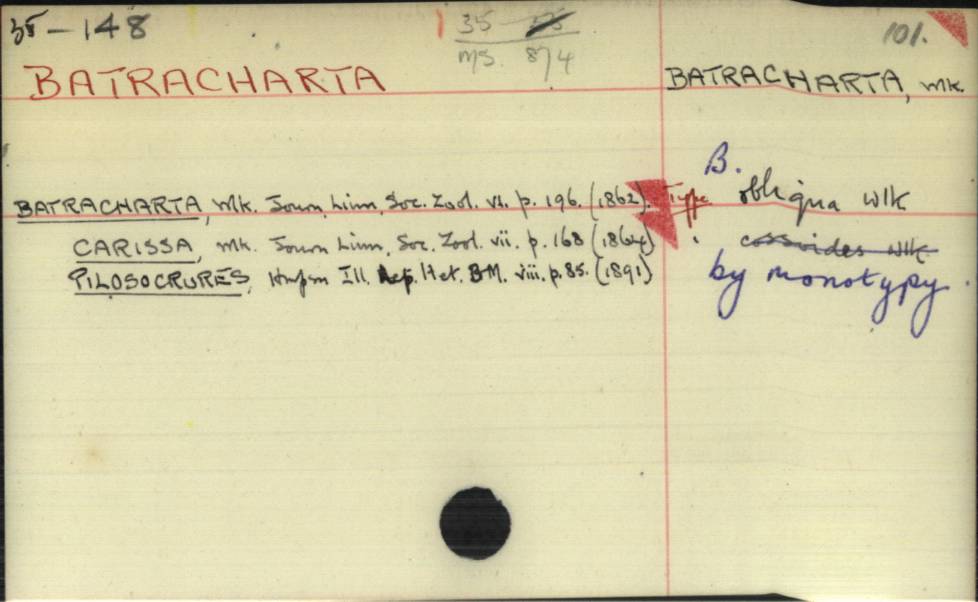 35-148
35
ms. 874
101.
BATRACHARTA
BATRACHARTA, Wlk.
BATRACHARTA, Wlk. Journ. Linn. Soc. Zool. vi. p. 196. (1862). Type
B. obliqua Wlk
CARISSA, Wlk. Journ. Linn. Soc. Zool. vii. p. 168 (1864)
cossoides Wlk
PILOSOCRURES, Hmpsn Ill. Het. B.M. viii. p. 85. (1891)
by monotypy.